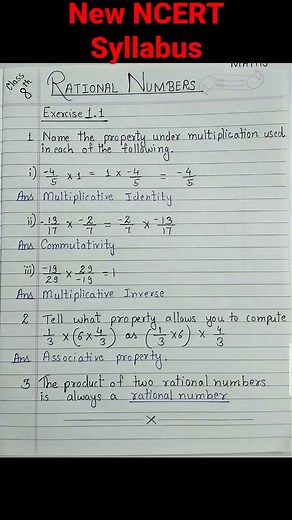 New NCERT
Syllabus
MATHS
Class
8th
RATIONAL NUMBERS
Exercise 1.1
1 Name the property under multiplication used
in each of the following.
i) -4/5 × 1 = 1 × -4/5 = -4/5
Ans Multiplicative Identity
ii) -13/17 × -2/7 = -2/7 × -13/17
Ans Commutativity
iii) -19/29 × 29/-19 = 1
Ans Multiplicative Inverse
2 Tell what property allows you to compute
1/3 × (6 × 4/3) as (1/3 × 6) × 4/3
Ans Associative property.
3 The product of two rational numbers
is always a rational number
x